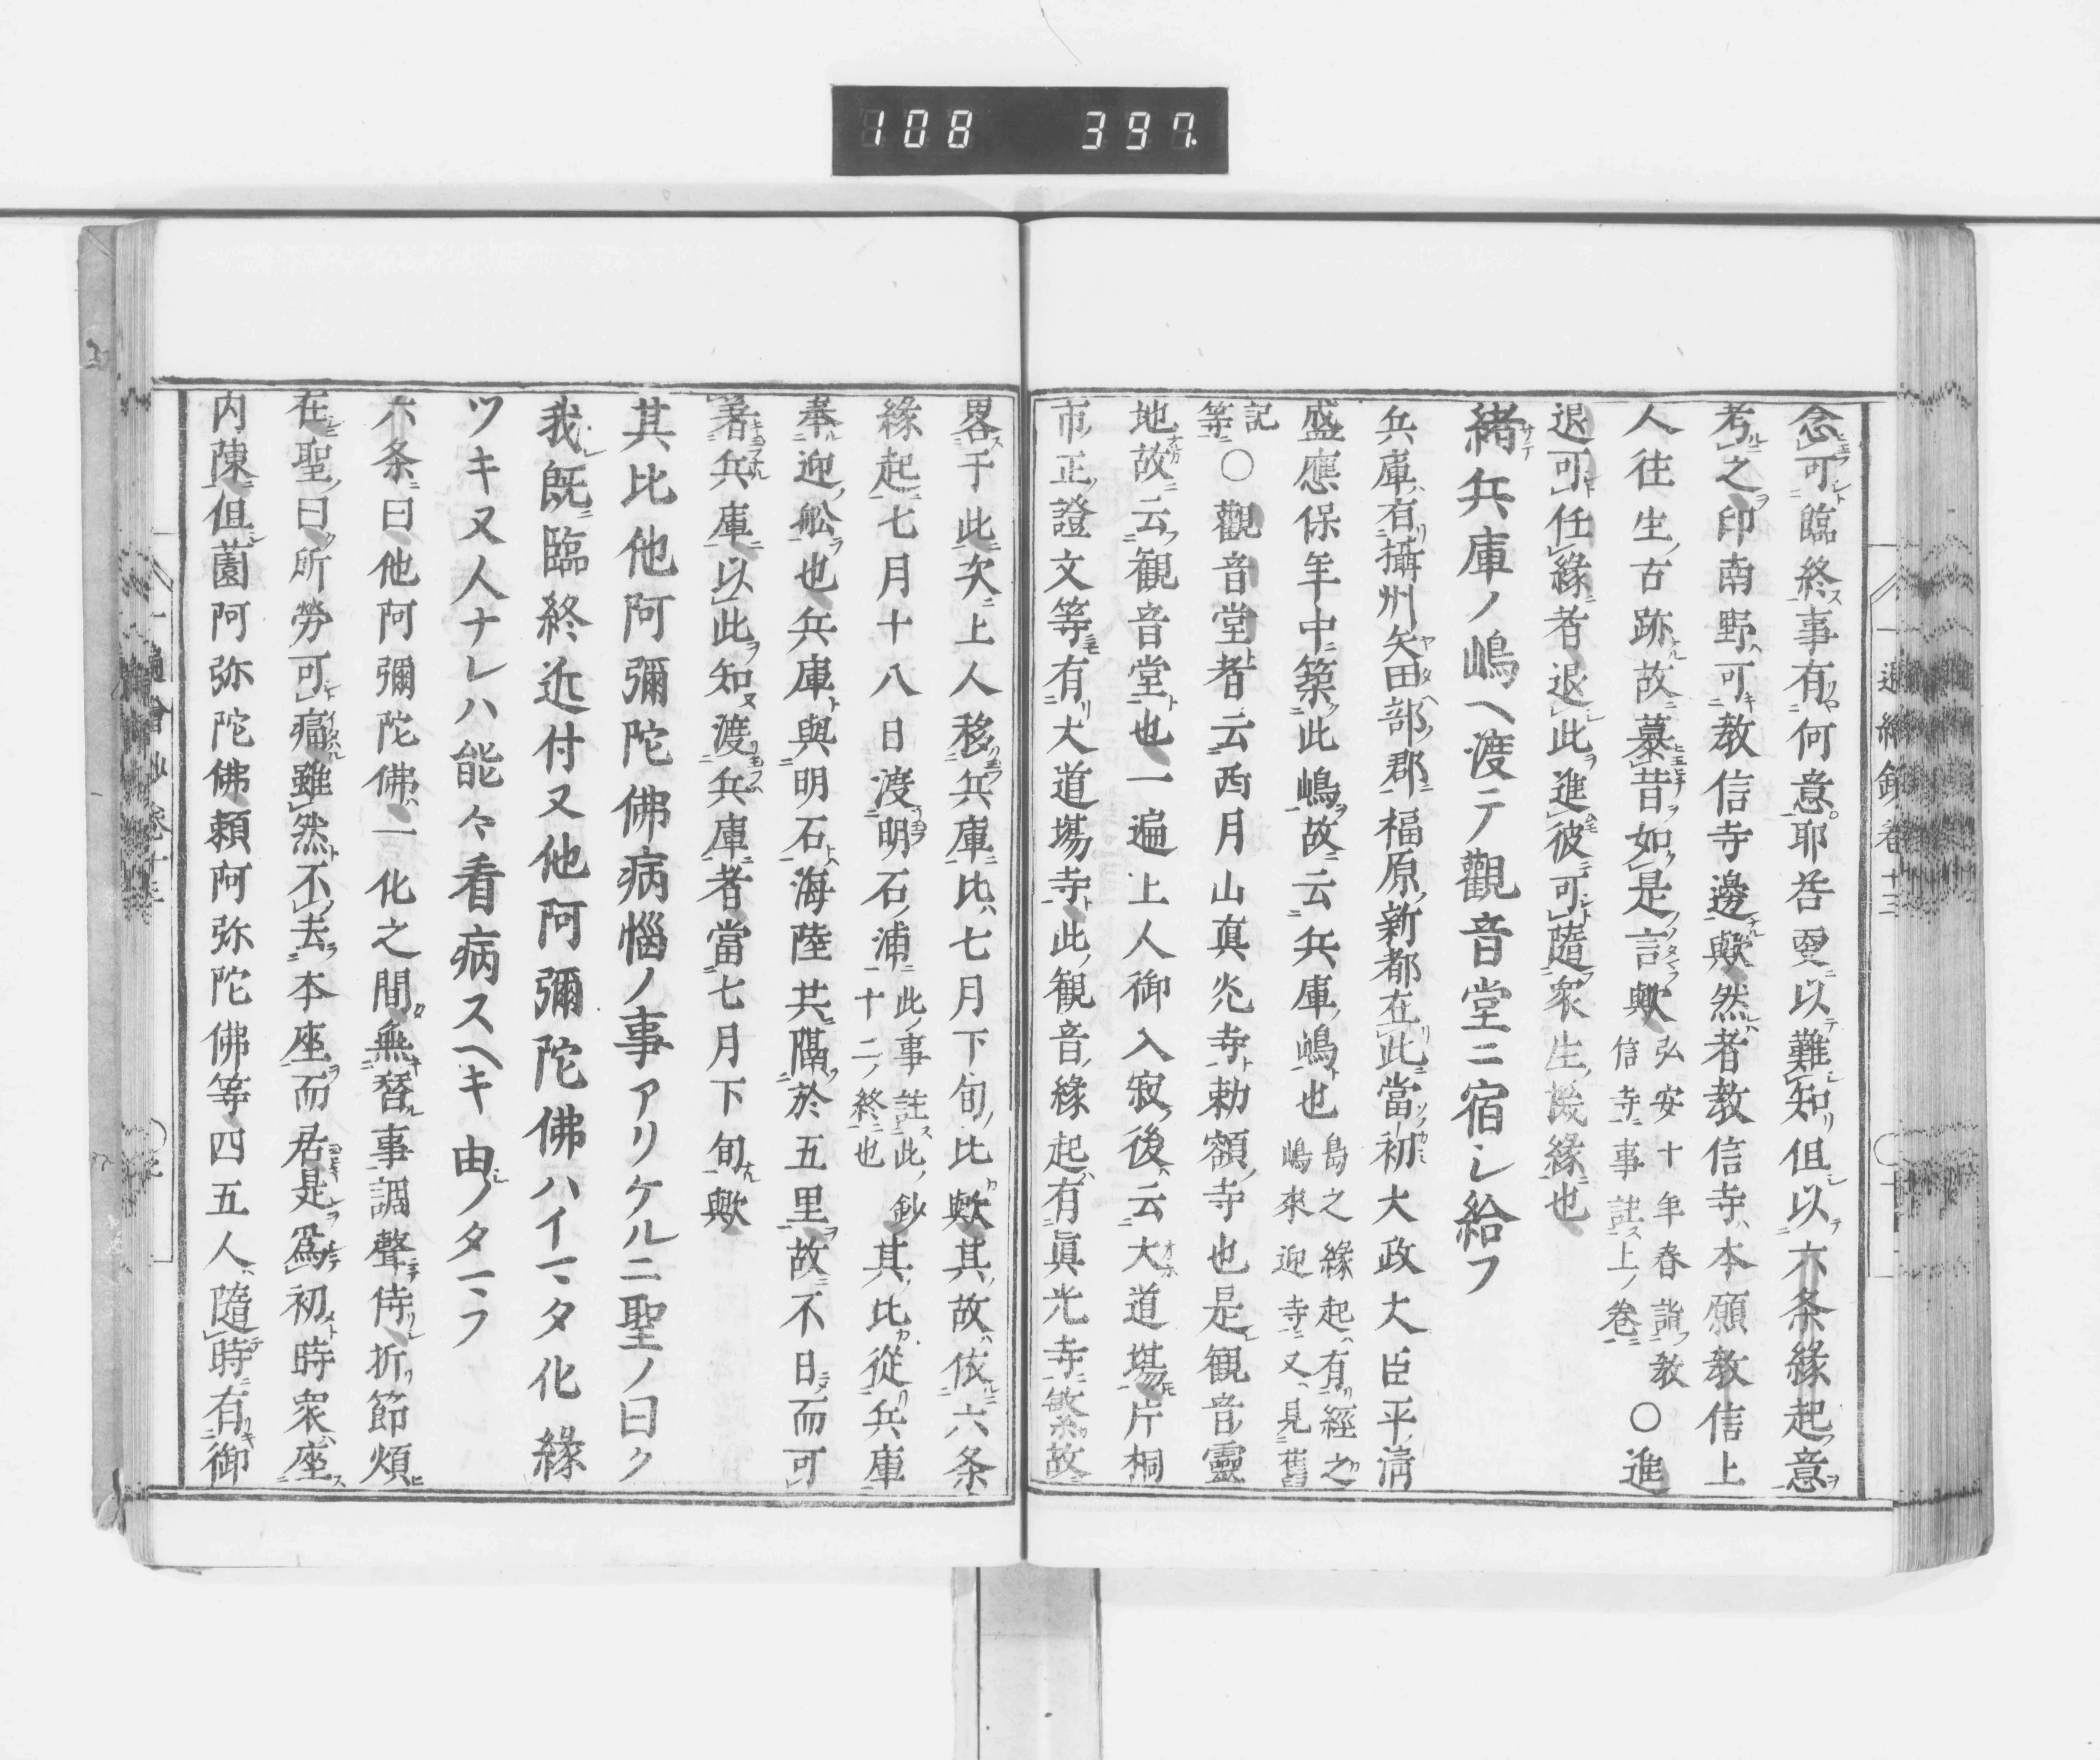 108 397.
念可臨終事有何意耶荅更以難知但以六条緣起意
考之印南野可教信寺邊歟然者教信寺本願教信上
人往生古跡故慕昔如是言歟弘安十年春詣教信寺事註上卷○進
退可任緣者退此進彼可隨衆生機緣也
緒兵庫ノ嶋ヘ渡テ觀音堂ニ宿シ給フ
兵庫有攝州矢田部郡福原新都在此當初大政大臣平清
盛應保年中築此嶋故云兵庫嶋也島之緣起有經之嶋來迎寺又見舊
記等○觀音堂者云西月山眞光寺勅額寺也是観音靈
地故云観音堂也一遍上人御入寂後云大道塲片桐
市正證文等有大道塲寺此観音緣起有眞光寺繁故
畧于此次上人移兵庫比七月下旬比歟其故依六条
緣起七月十八日渡明石浦此事註此鈔十二終也其比從兵庫
奉迎舩也兵庫與明石海陸共隔於五里故不日而可
著兵庫以此知渡兵庫者當七月下旬歟
其比他阿彌陀佛病惱ノ事アリケルニ聖ノ曰ク
我既臨終近付又他阿彌陀佛ハイマタ化緣
ツキ又人ナレハ能々看病スヘキ由ノタマフ
六条曰他阿彌陀佛一化之間無替事調聲侍折節煩
在聖曰所勞可痛雖然不去本座而君是爲初時衆座
内陳但薗阿弥陀佛頼阿弥陀佛等四五人隨時有御